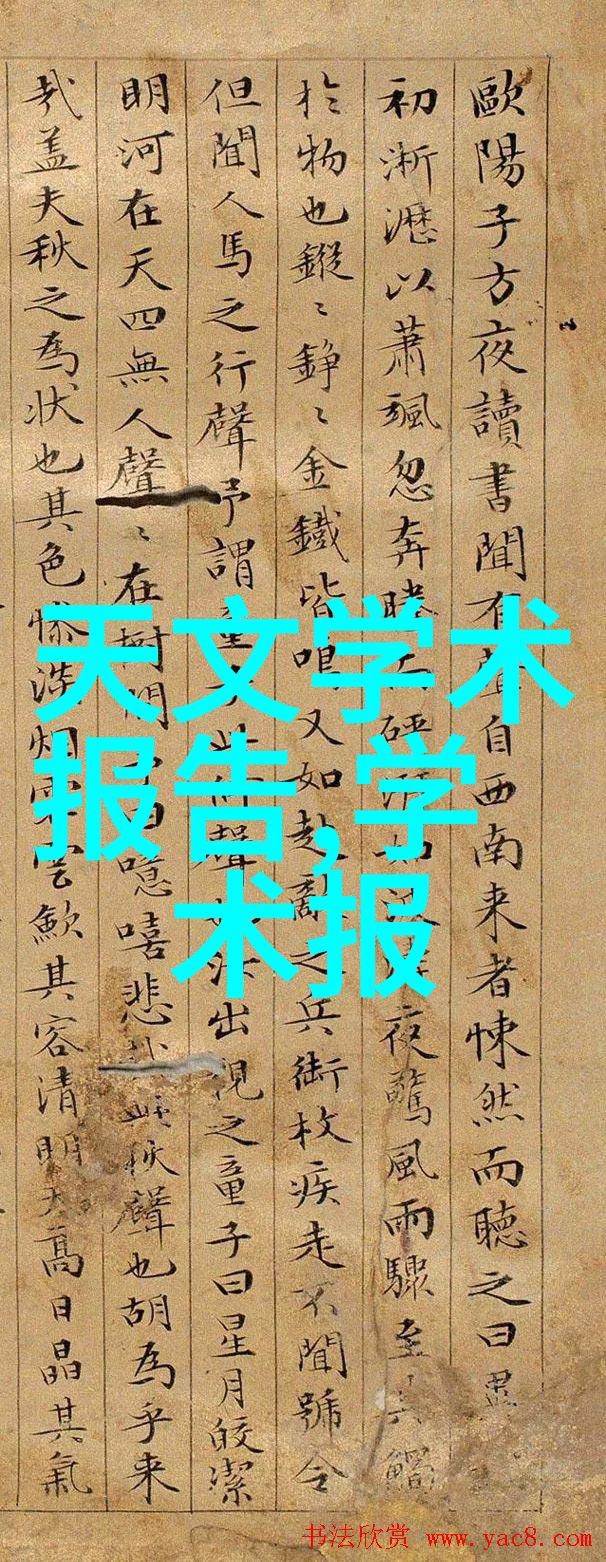 歐陽子方夜讀書聞有聲自西南来者悚然而聴之曰異
初淅瀝以蕭颯忽奔騰而砰湃如波夜驚風雨驟至其觸
扵物也鏦〻錚〻金鐵皆鳴又如赴敵之兵銜枚疾走不聞號令
但聞人馬之行聲予謂童子此何聲也汝出視之童子曰星月皎潔
明河在天四無人聲〻在樹間予曰噫嘻悲哉此秋聲也胡為乎来
哉盖夫秋之為状也其色惨淡烟霏雲歛其容清明天高日晶其氣
天文学术
报告,学
术报
书法欣赏 www.yac8.com